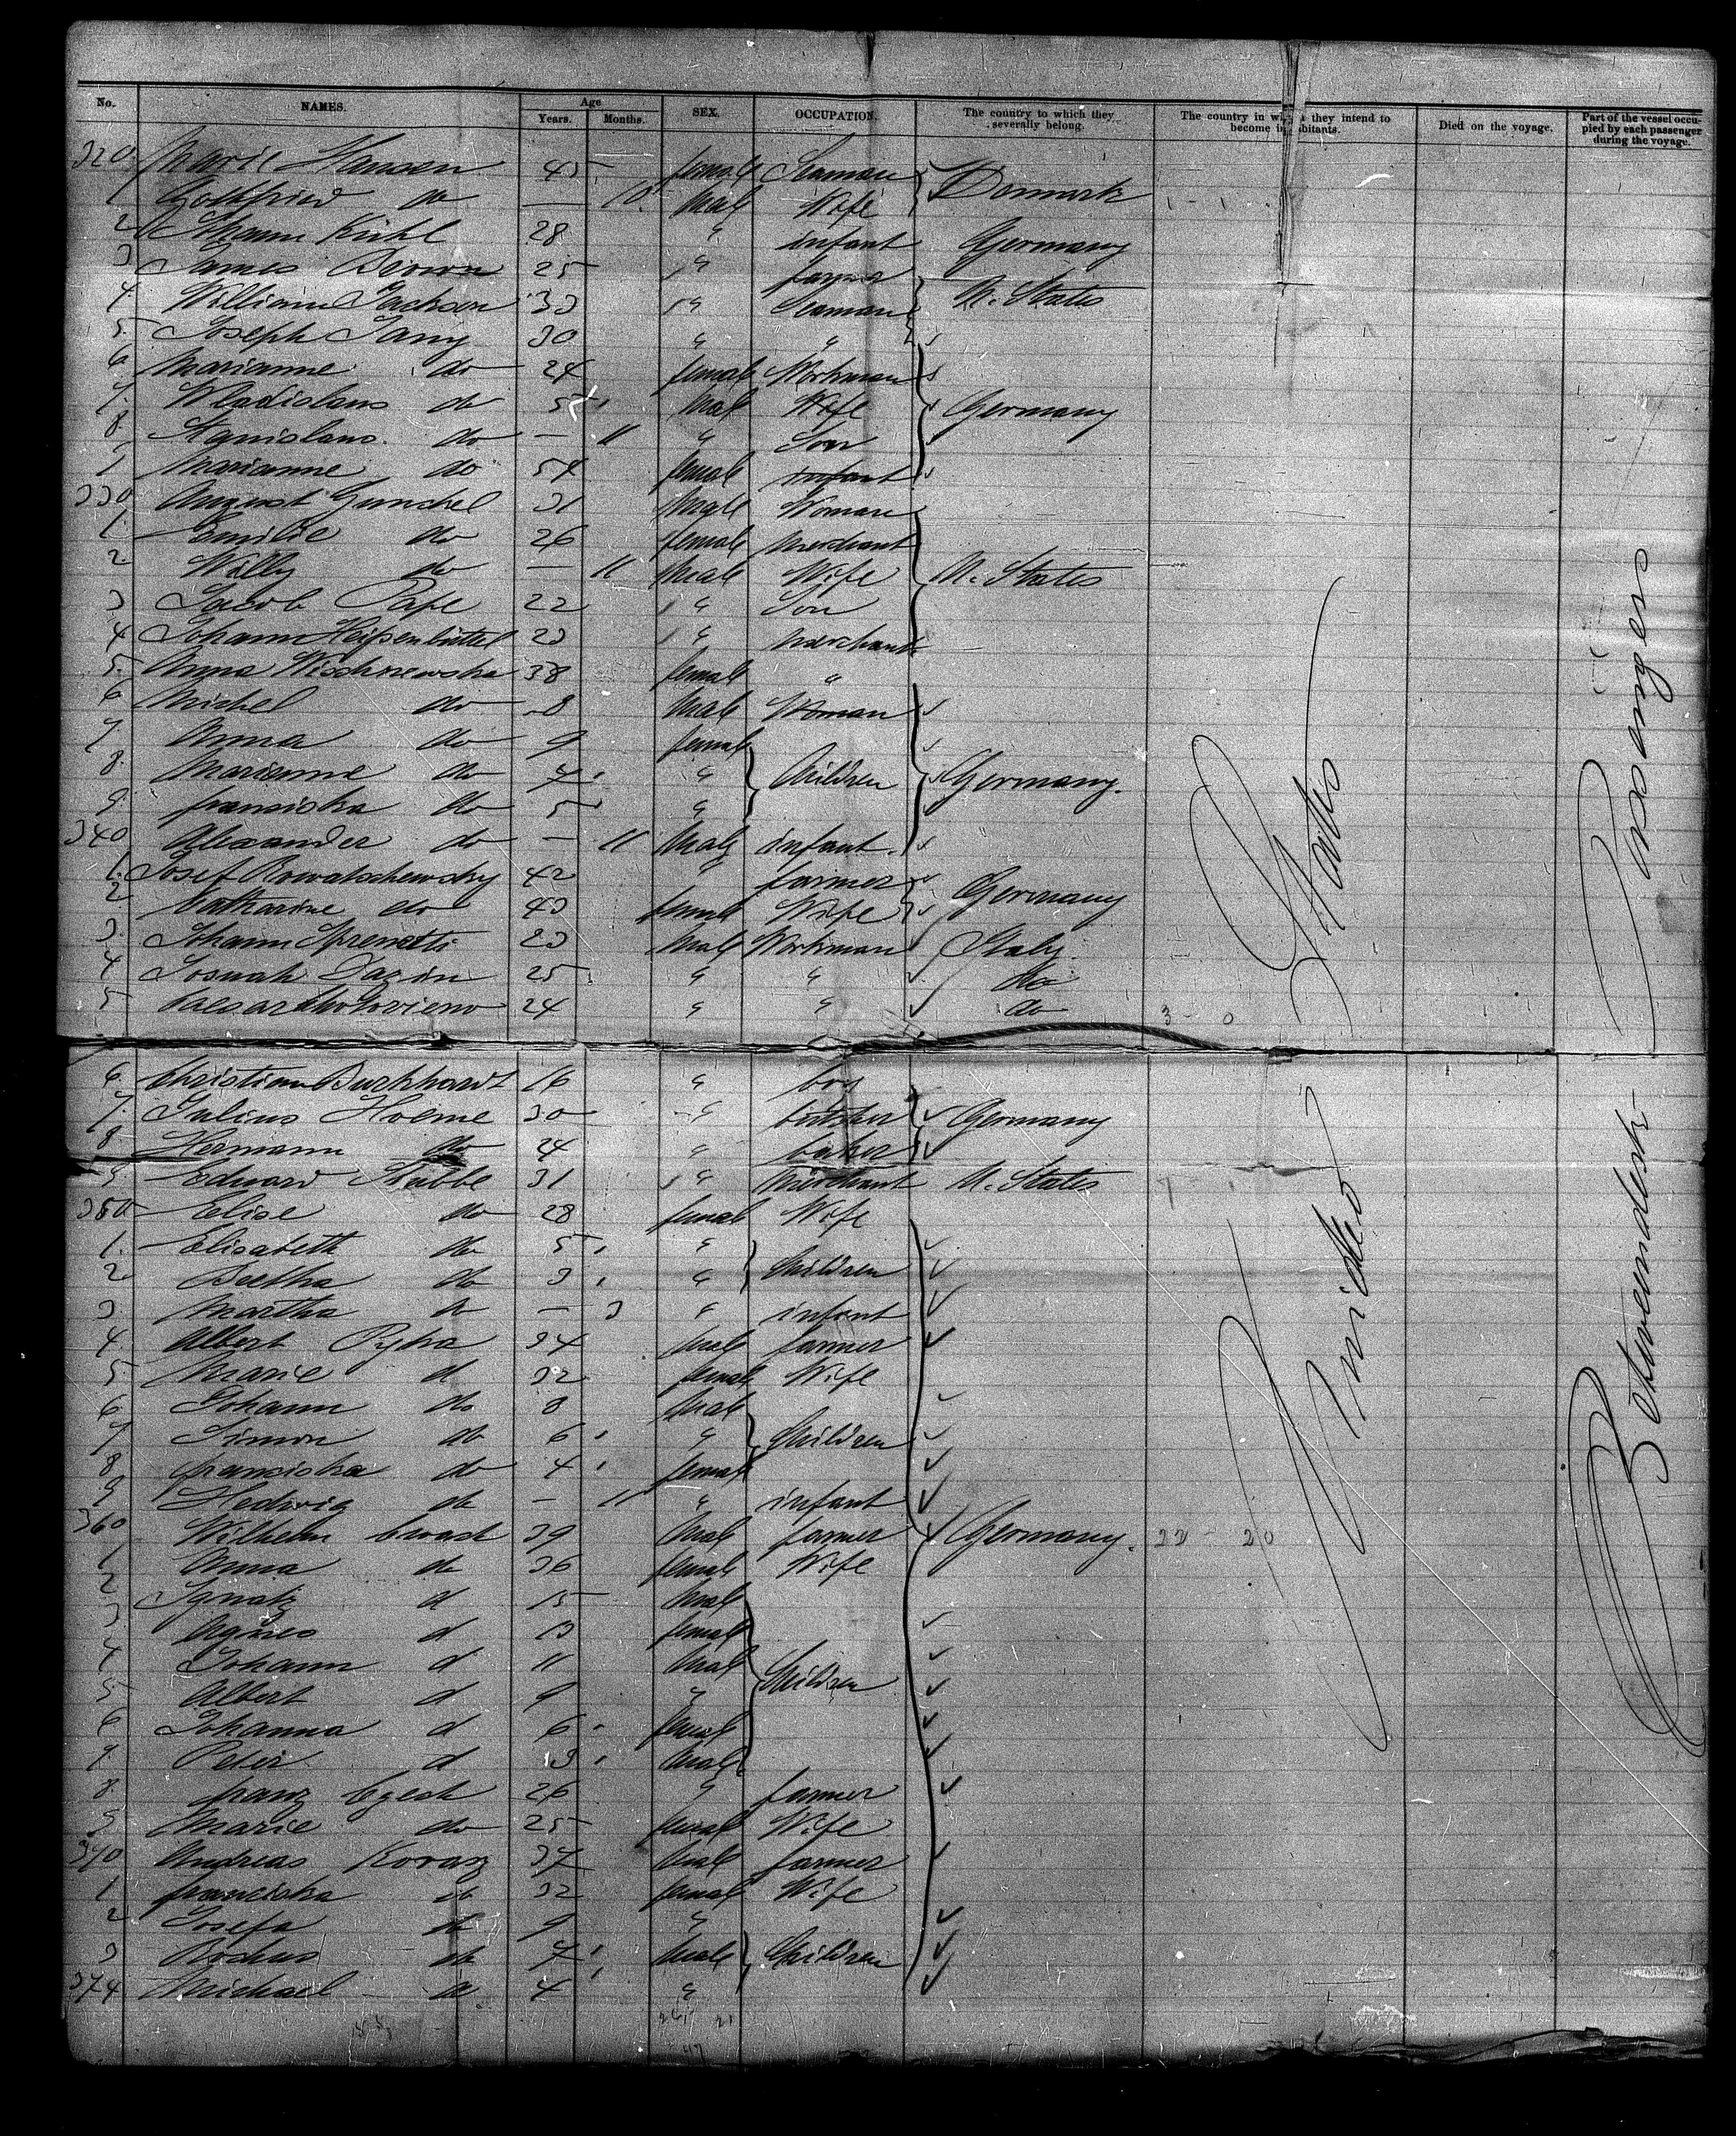 No. NAMES. Age Years. Months. SEX. OCCUPATION. The country to which they severally belong. The country in which they intend to become inhabitants. Died on the voyage. Part of the vessel occupied by each passenger during the voyage.
320 Marie Hansen 45 female Seaman
1 Gottfried do — 10 Male Wife Denmark
2 Johann Kühl 28 " infant Germany
3 James Brown 25 " farmer
4. William Jackson 33 " Seaman U. States
5. Joseph Jany 30 " "
6 Marianne do 24 female Workman
7. Wladislaus do 5 Male Wife Germany
8. Stanislaus do — 11 " Son
9 Marianne do 54 female infant
330 August Gunschel 31 Male Woman
1. Emilie do 26 female Merchant
2 Willy do — 11 Male Wife U. States
3 Jacob Pape 22 " Son
4 Johann Heissenbüttel 23 " Merchant
5. Anna Wischnewska 38 female "
6 Michel do 8 Male Woman
7. Anna do 9 female
8. Marianne do 4 " Children Germany.
9. franciska do 5 "
340 Alexander do — 11 Male infant
1. Josef Kowatschewsky 42 " farmer Germany
2 Catharine do 43 female Wife
3. Johann 23 Male Workman Italy.
4 Josuah 25 " " do
5 Caesar 24 " " do 3 - 0
6. Christian Burkhardt 16 " boy
7. Julius Hoene 30 " butcher Germany
8 Hermann do 24 " baker
9 Eduard Stubbe 31 " Merchant U. States
350 Elise do 28 female Wife
1. Elisabeth do 5 "
2 Bertha do 3 " Children
3. Martha do — 3 " infant
4. Albert 34 Male farmer
5. Marie d 32 female Wife
6 Johann do 8 Male
7 Simon do 6 " Children
8 franciska do 4 female
9 Hedwig do — 11 " infant
360 Wilhelm 39 Male farmer Germany. 22 - 20
1 Anna do 36 female Wife
2 Ignatz d 15 Male
3 Agnes d 13 female
4 Johann d 11 Male Children
5 Albert d 9 "
6 Johanna d 6 female
7. Peter d 3 Male
8 franz 26 " farmer
9 Marie do 25 female Wife
370 Andreas 37 Male farmer
1 franciska do 32 female Wife
2 Josefa do 9 "
3 Rochus do 7 Male Children
374 Michael do 4 "
United States
Betweendeck Passengers